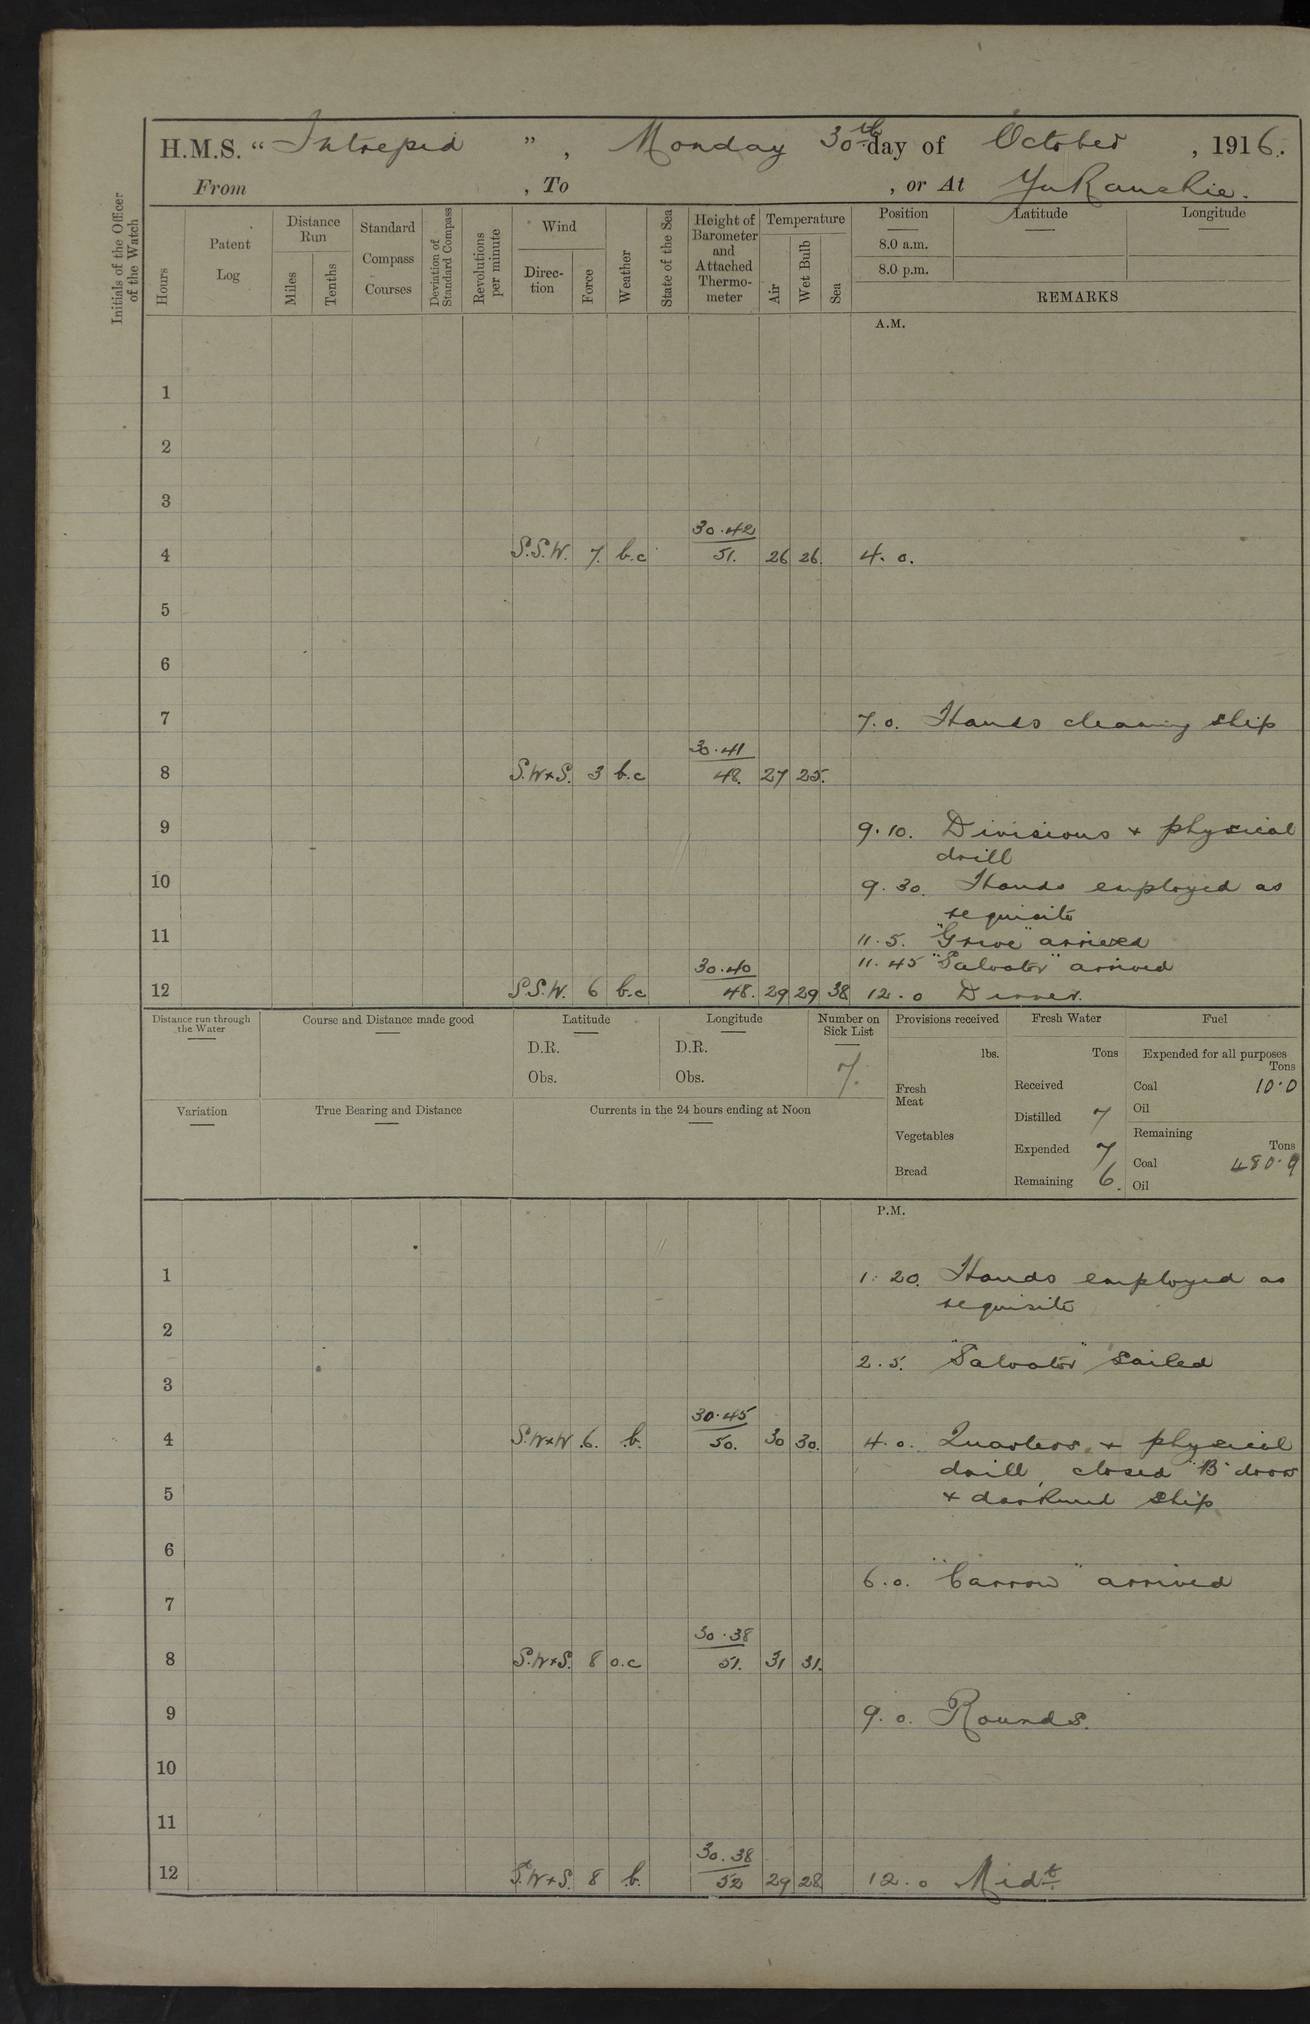 H.M.S. “ Intrepid ” , Monday 30th day of October , 1916.
From , To , or At Yukanskie.
Initials of the Officer of the Watch
Hours
Patent Log
Distance Run
Miles
Tenths
Standard Compass Courses
Deviation of Standard Compass
Revolutions per minute
Wind
Direc-tion
Force
Weather
State of the Sea
Height of Barometer and Attached Thermo-meter
Temperature
Air
Wet Bulb
Sea
Position Latitude Longitude
8.0 a.m.
8.0 p.m.
REMARKS
A.M.
1
2
3
30.42
4 S.S.W. 7. b.c 51. 26 26. 4. 0.
5
6
7 7.0. Hands cleaning ship
30.41
8 S.W×S. 3 b.c 48. 27 25.
9 9.10. Divisions + physical
drill
10 9.30. Hands employed as
requisite
11 11.5. "Grive" arrived
30.40 11.45 "Salvator" arrived
12 S.S.W. 6 b.c 48. 29 29 38 12.0 Dinner.
Distance run through the Water
Course and Distance made good
Latitude
D.R.
Obs.
Longitude
D.R.
Obs.
Number on Sick List
7.
Provisions received
lbs.
Fresh Meat
Vegetables
Bread
Fresh Water
Tons
Received
Distilled 7
Expended 7
Remaining 6.
Fuel
Expended for all purposes
Tons
Coal 10.0
Oil
Remaining
Tons
Coal 480.9
Oil
Variation
True Bearing and Distance
Currents in the 24 hours ending at Noon
P.M.
1 1.20. Hands employed as
requisite
2
2.5. "Salvator" sailed
3
30.45
4 S.W×W .6. b. 50. 30 30. 4.0. Quarters + physical
drill, closed "B" doors
5 + darkened ship
6
6.0. "Carrow" arrived
7
30.38
8 S.W×S. 8 o.c 51. 31 31.
9 9.0. Rounds.
10
11
30.38
12 S.W×S. 8 b. 52 29 28 12.0 Midt.